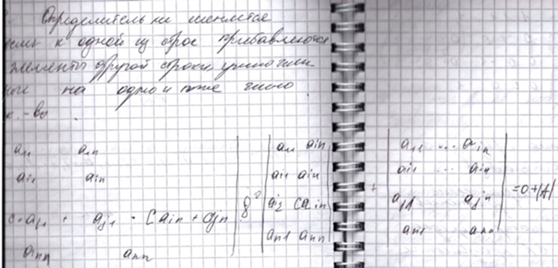 Определитель не меняется
если к одной из строк прибавляются
элементы другой строки умножен
ные на одно и тоже число
к-во.
a₁₁ a₁ₙ
aᵢ₁ aᵢₙ
c·aᵢ₁ + aⱼ₁ · caᵢₙ + ajn
aₙ₁ aₙₙ
a₁₁ a₁ₙ
aᵢ₁ aᵢₙ
caᵢₙ
aₙ₁ aₙₙ
+
a₁₁ ... a₁ₙ
aᵢ₁ ... aᵢₙ
aⱼ₁ aⱼₙ
aₙ₁ aₙₙ
=0+|A|